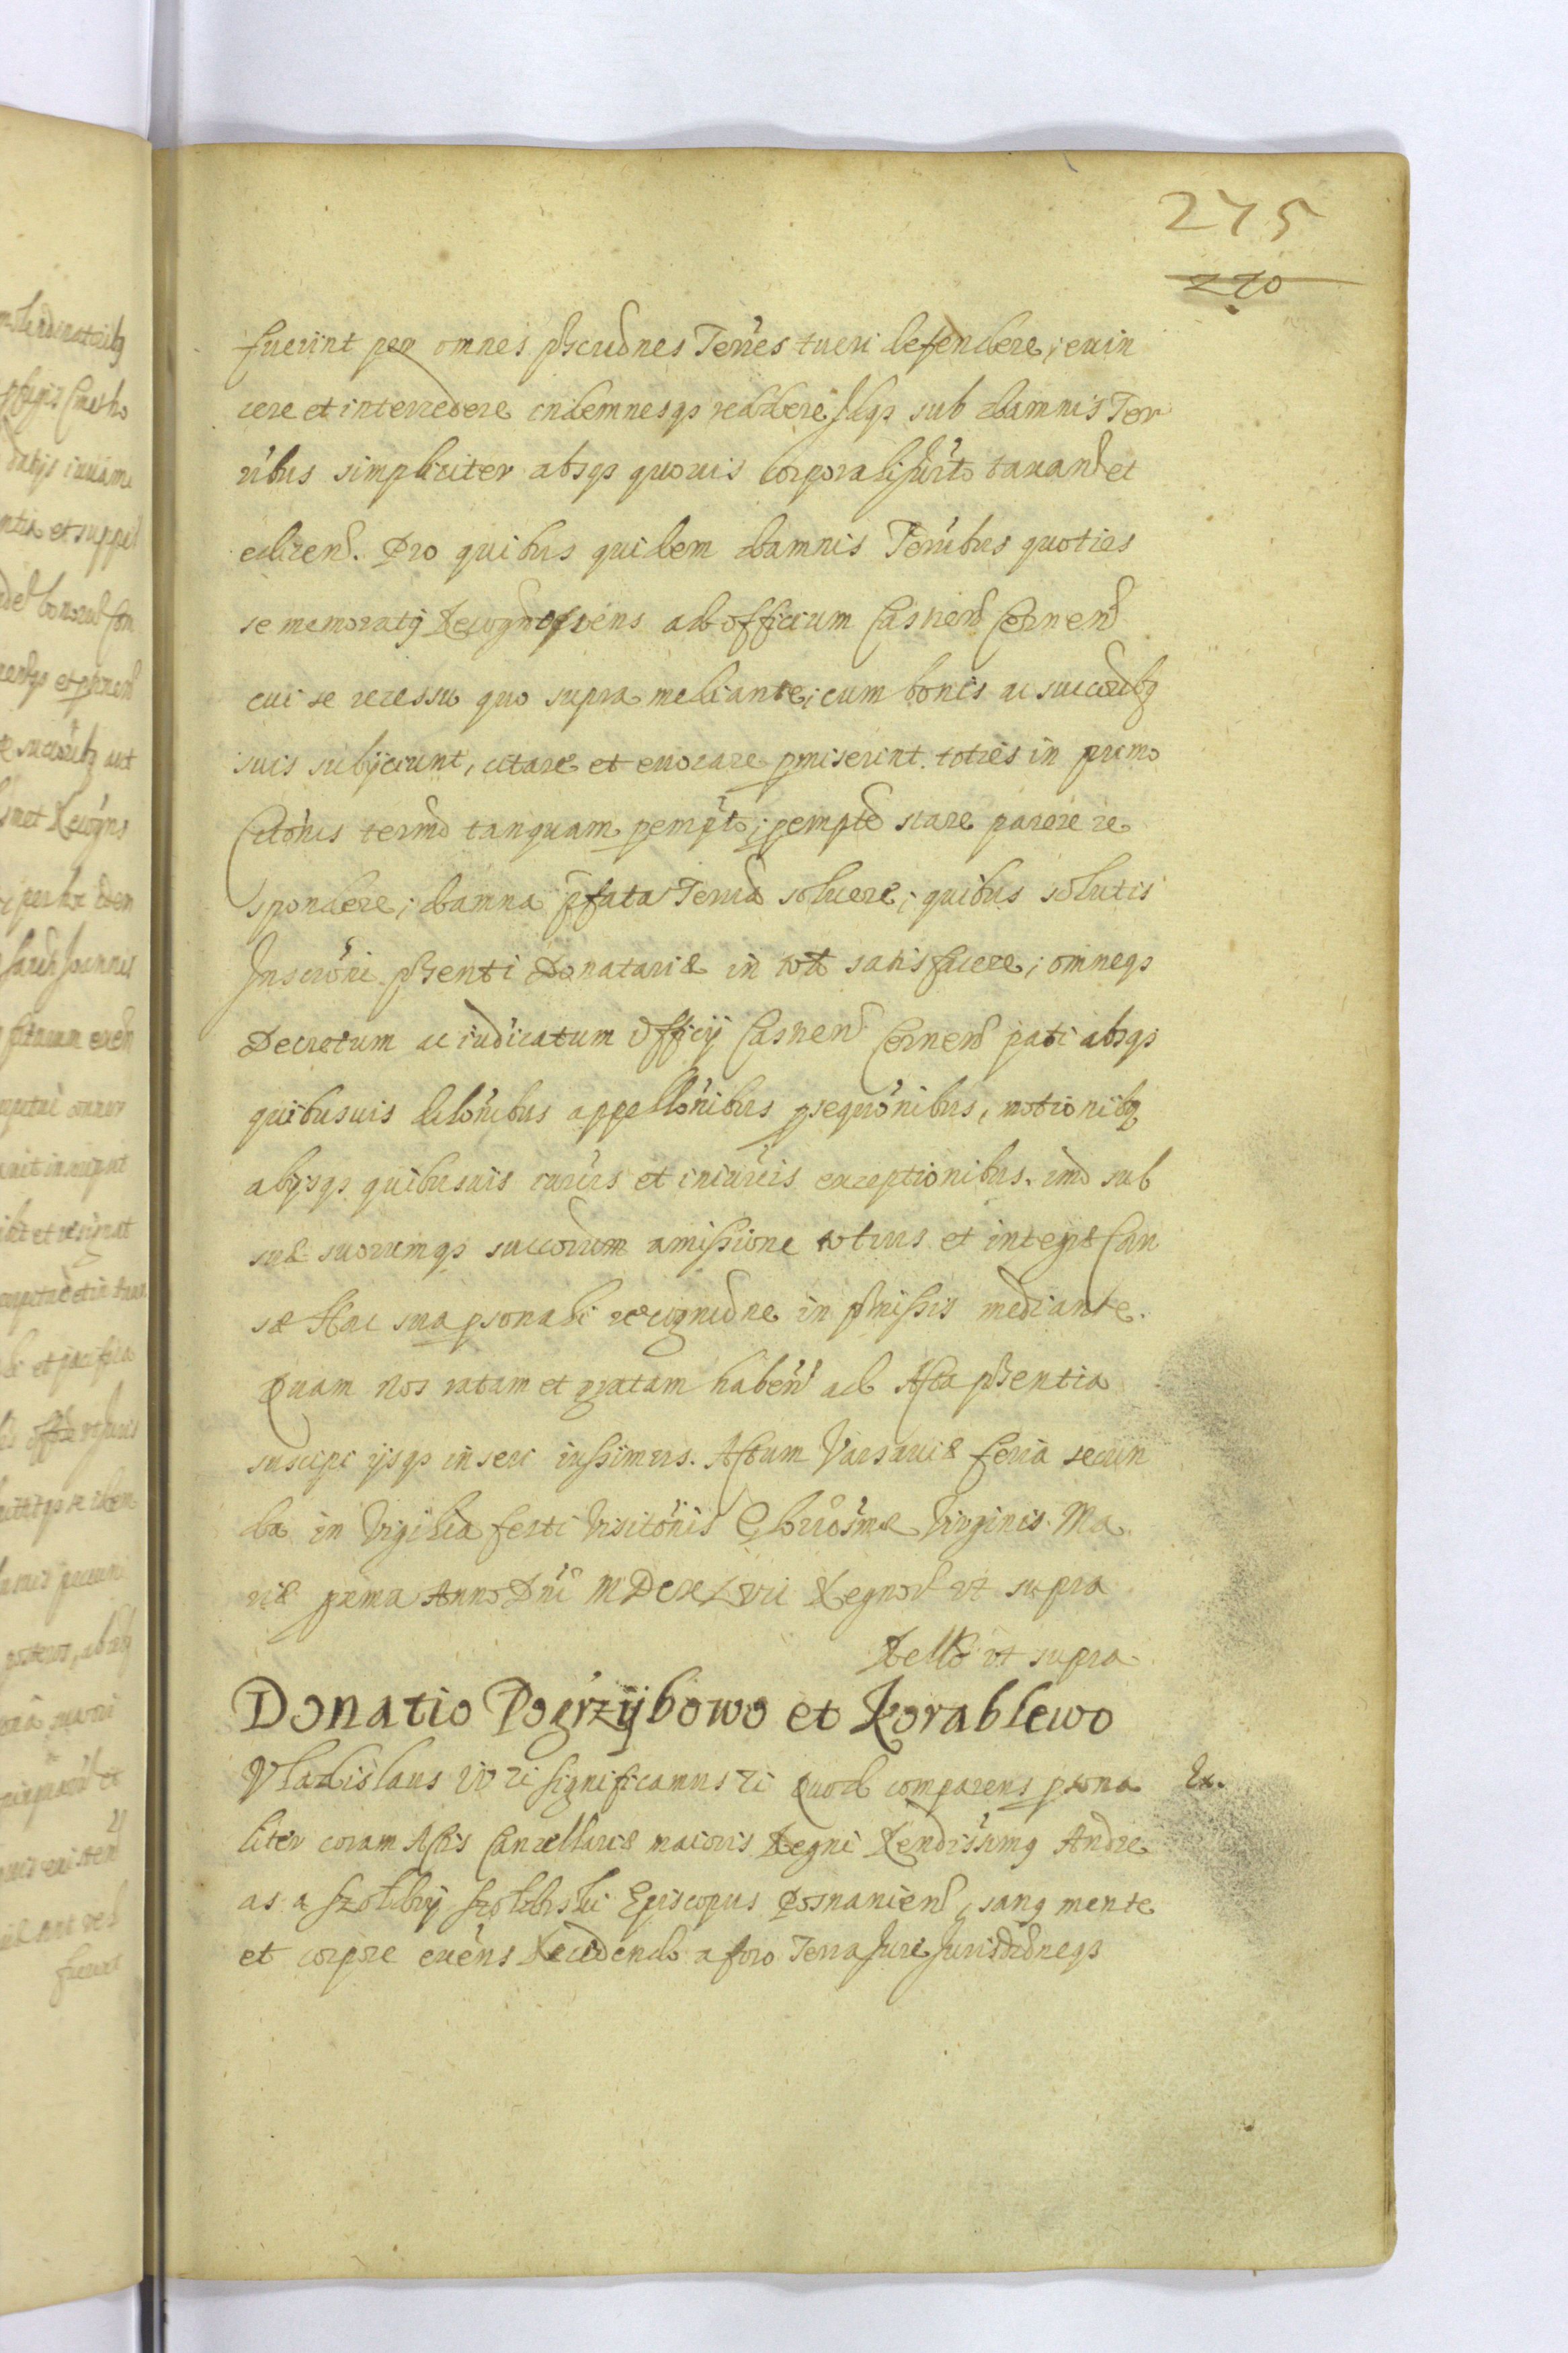 275
270
fuerint per omnes pscudnes Terres tueri defendere, evin
cere et intercedere indemnesqs reddere Idqs sub damnis Ter
ribus simpliciter absqs quovis corporali Jurto taxand et
edicend. Pro quibus quidem damnis Terribus quoties
se memoraty Recogn ad officium Casnend Cernend
cui se recessu quo supra mediante, cum bonis ac succoribq
suis subijciunt, citare et evocare pmiserint toties in primo
Citonis termo tanquam pempto, pempte stare parere re
spondere, damna pfata Terria solvere, quibus solutis
Inscroni psenti Donatariæ in toto satisfacere, omneqs
Decretum ac iudicatum Officij Casnend Cernend pati absqs
quibusuis dilonibus appellonibus psequonibus, motionibq
alijsqs quibusuis iuris et iniuris exceptionibus. imo sub
suæ suorumqs succorum amissione totius et integræ Cau
sæ Hac sua psonali recognidne in pmissis mediante.
Quam nos ratam et gratam habend ad Acta psentia
suscipi ijsqs inseri iussimus. Actum Varsaviæ feria secun
da in Vigilia festi Visitonis Gloriosmæ Virginis Ma
riæ prima Anno Dni MDCXLVII Regnor vt supra
Rello vt supra
Donatio Pogrzybowo et Korablewo
Vladislaus IV ri significamus ri Quod comparens psona Ex.
liter coram Actis Cancellariæ maioris Regni Rendissimq Andre
as a Szoldry Szoldrski Episcopus Posnaniend, sanq mente
et corpore exens Recedendo a foro Terra Jure Jurisdidneqs